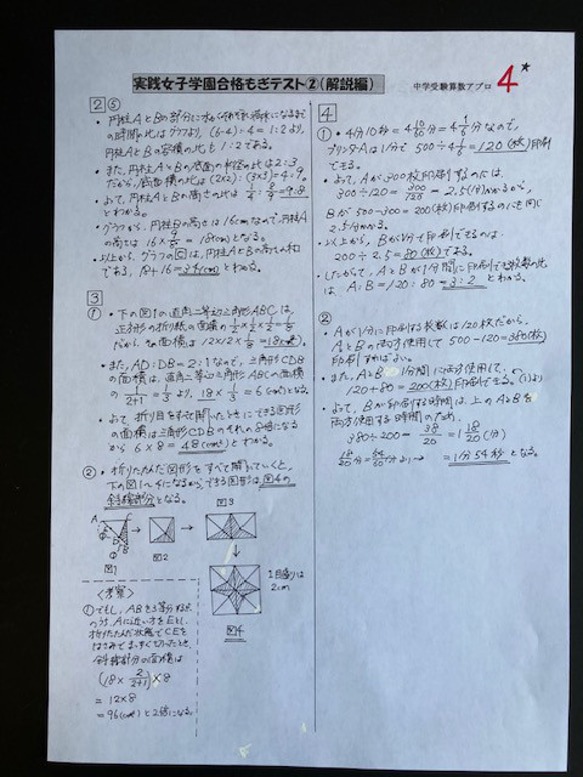 実践女子学園合格もぎテスト②(解説編)
中学受験算数アプロ 4
2 ⑤
・円柱AとBの部分に水が
の時間の比はグラフより、(6-4):4=1:2より、
円柱AとBの容積の比も1:2である。
・また、円柱AとBの底面の半径の比は2:3
だから、底面積の比は(2×2):(3×3)=4:9。
・よって、円柱AとBの高さの比は 1/4:2/9=9:8
とわかる。
・グラフから、円柱Bの高さは16cmなので、円柱A
の高さは 16×9/8=18(cm)となる。
・以上から、グラフの□は、円柱AとBの高さの和
である、18+16=34(cm)とわかる。
3
①・下の図1の直角二等辺三角形ABCは、
正方形の折り紙の面積の1/2×1/2×1/2=1/8
だから、その面積は12×12×1/8=18(cm²)。
・また、AD:DB=2:1なので、三角形CDB
の面積は、直角二等辺三角形ABCの面積
の 1/2+1=1/3より、18×1/3=6(cm²)となる。
・よって、折り目をすべて開いたときにできる図形
の面積は三角形CDBのそれの8倍になる
から 6×8=48(cm²)とわかる。
②・折りたたんだ図形をすべて開いていくと、
下の図1~4になるから、できる図形は図4の
斜線部分となる。
図3
A
D
B
図1
図2
1目盛りは
2cm
図4
〈考察〉
①でもし、ABを3等分する点
のうち、Aに近い方をEとし、
折りたたんだ状態でCEを
はさみでまっすぐ切ったとき、
斜線部分の面積は
(18×2/2+1)×8
=12×8
=96(cm²)と2倍になる。
4
①・4分10秒=4 10/60分=4 1/6分なので、
プリンターAは1分で 500÷4 1/6=120(枚)印刷
できる。
・よって、Aが300枚印刷するのには
300÷120=300/120=2.5(分)かかるから、
Bが500-300=200(枚)印刷するのにも同じ
2.5分かかる。
・以上から、Bが1分で印刷できるのは
200÷2.5=80(枚)である。
・したがって、AとBが1分間に印刷できる枚数の比
は、A:B=120:80=3:2 とわかる。
②
・Aが1分に印刷する枚数は120枚だから、
AとBの両方使用して 500-120=380(枚)
印刷すればよい。
・また、AとB 1分間に両方使用して、
120+80=200(枚)印刷できる。(①より)
・よって、Bが印刷する時間は、上のAとBを
両方使用する時間のため、
380÷200=38/20=1 18/20(分)
18/20分=54/60分より → =1分54秒 となる。